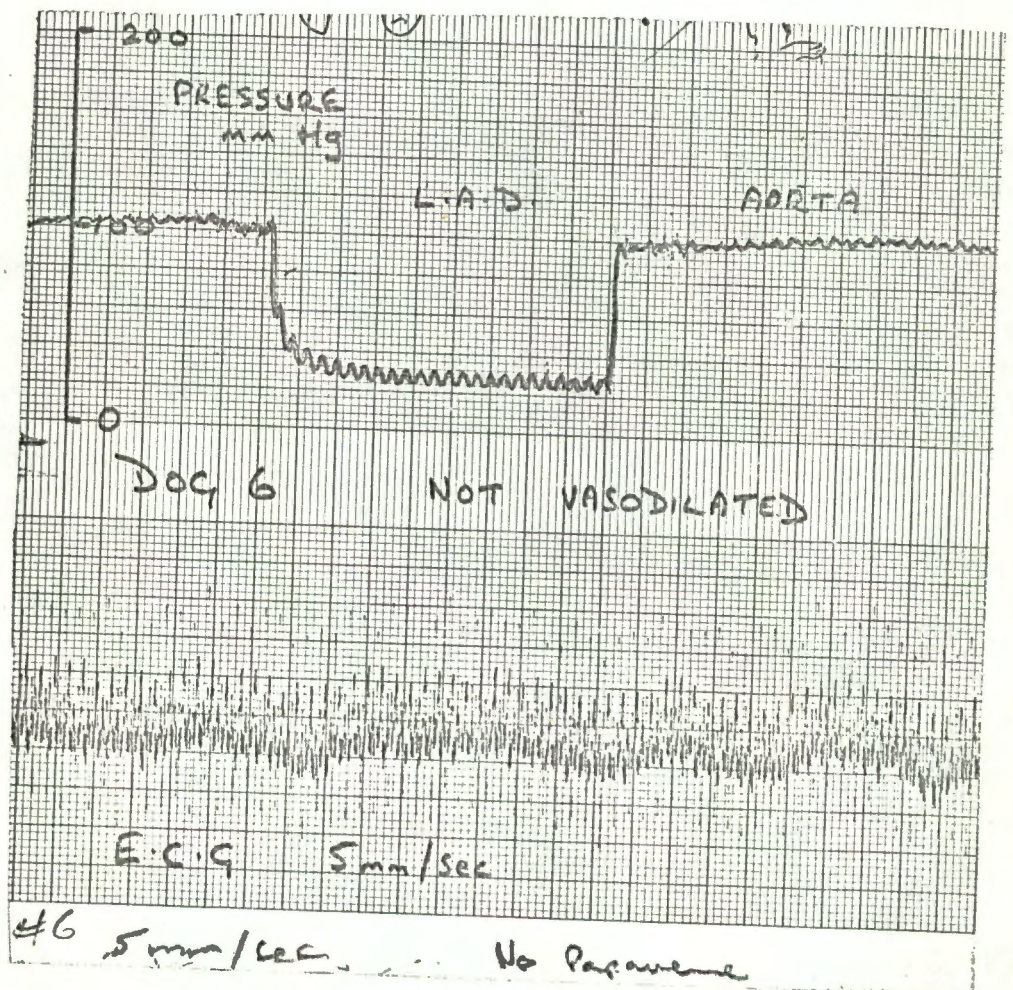 200
PRESSURE
mm Hg
L.A.D. AORTA
100
0
DOG 6 NOT VASODILATED
E.C.G 5mm/sec
#6 5mm/sec. No Papaverine